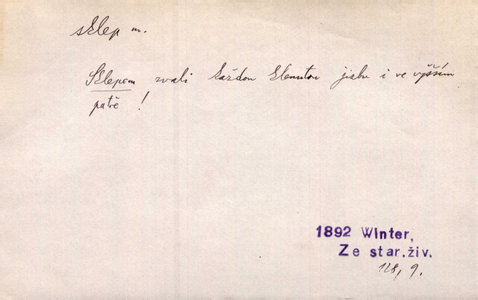 sklep m.
Sklepem zvali každou klenutou jizbu i ve vyšším
patře!
1892 Winter,
Ze star.živ.
128, 9.